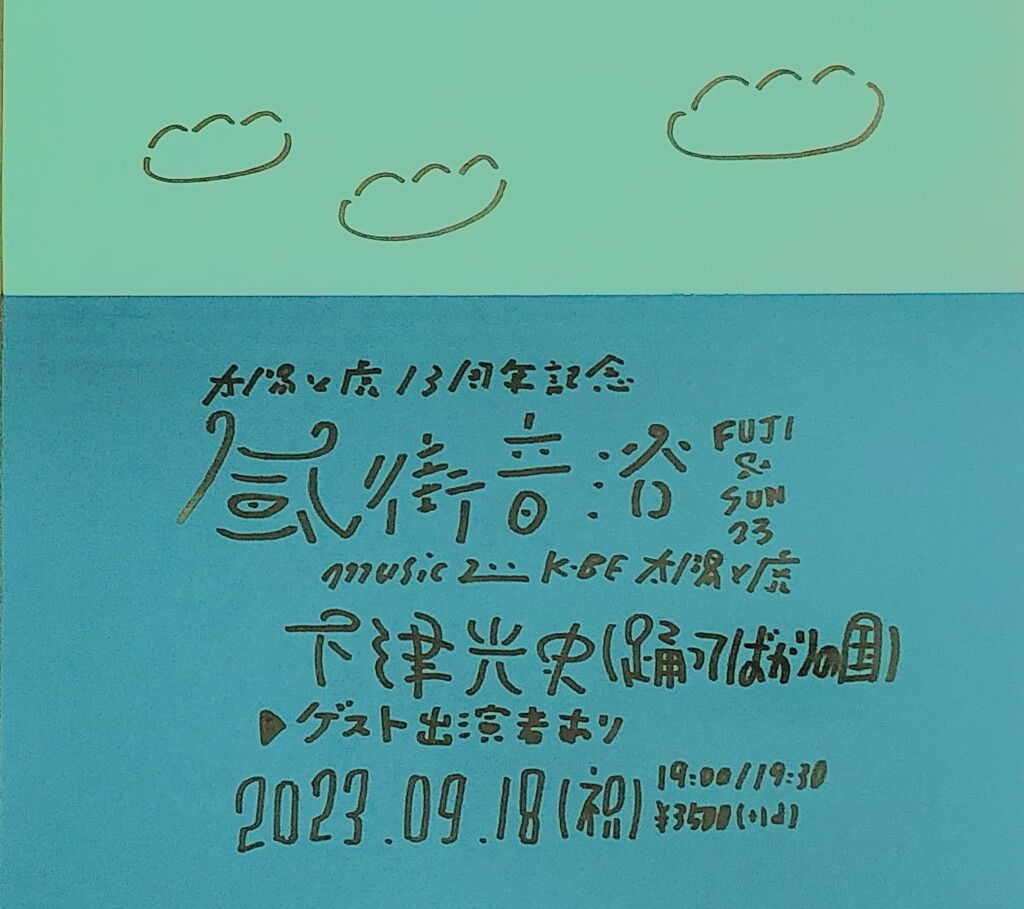 太陽と虎13周年記念
街音浴
FUJI
&
SUN
23
music zoo KOBE 太陽と虎
下津光史(踊ってばかりの国)
▶ゲスト出演者あり
2023.09.18(祝)
19:00/19:30
¥3500(+1d)